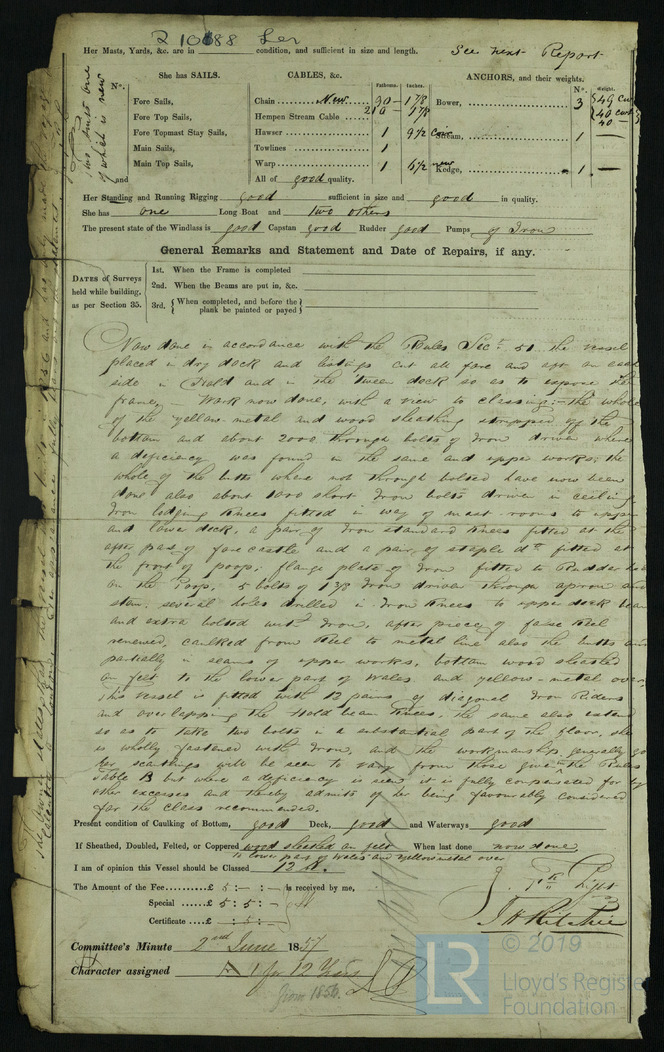 R 10688 Ler
Her Masts, Yards, &c. are in condition, and sufficient in size and length. See next Report
She has SAILS. CABLES, &c. Fathoms. Inches. ANCHORS, and their weights. Nº. Weight.
Nº.
Fore Sails, Chain New 90 – 1 7/8 Bower, 3 49 Cwt
Fore Top Sails, Hempen Stream Cable 210 – 1 7/8 40 cwt
Fore Topmast Stay Sails, Hawser 1 9½ Coir Stream, 1 40 –
Main Sails, Towlines 1
Main Top Sails, Warp 1 6½ new Kedge, 1 –
and All of good quality.
Two suits one of which is new
Her Standing and Running Rigging good sufficient in size and good in quality.
She has one Long Boat and two others
The present state of the Windlass is good Capstan good Rudder good Pumps of Iron
General Remarks and Statement and Date of Repairs, if any.
DATES of Surveys held while building, as per Section 35.
1st. When the Frame is completed
2nd. When the Beams are put in, &c.
3rd. { When completed, and before the plank be painted or payed }
Now done in accordance with the Rules Secn 51 the vessel
placed in dry dock and listings cut all fore and aft on each
side in Hold and in the tween deck so as to expose the
frame, – Work now done, with a view to classing:– the whole
of the yellow metal and wood sheathing stripped off the
bottom and about 2000 through bolts of Iron driven where
a deficiency was found in the same and upper works; the
whole of the butts where not through bolted have now been
done also about 1000 short Iron bolts driven in ceiling
Iron lodging Knees fitted in way of mast rooms to upper
and lower deck, a pair of Iron standard Knees fitted at the
after part of fore castle and a pair of staple do fitted at
the front of poop; flange plate of Iron fitted to Rudder
on the Poop, 5 bolts of 1 3/8 Iron driven through apron and
stem: several holes drilled in Iron Knees to upper deck beam
and extra bolted with Iron, after piece of false Keel
renewed, caulked from Keel to metal line also the butts and
partially in seams of upper works, bottom wood sheathed
on felt to the lower part of wales and yellow-metal over.
This vessel is fitted with 12 pairs of diagonal Iron Riders
and overlapping the Hold beam Knees, the same also extend
so as to take two bolts in a substantial part of the floor, she
is wholly fastened with Iron, and the workmanship generally go
her scantlings will be seen to vary from those given the Rules
Table B but where a deficiency is seen it is fully compensated for by
other excesses and thereby admits of her being favourably considered
for the class recommended.
Present condition of Caulking of Bottom, good Deck, good and Waterways good
If Sheathed, Doubled, Felted, or Coppered wood sheathed on felt When last done now done
to lower part of wales and yellow metal over
I am of opinion this Vessel should be Classed 12 A.
The Amount of the Fee £ 5 : – : – is received by me,
Special £ 5 : 5 : –
Certificate £ : 5 : –
J H Ritchie
Committee's Minute 2nd June 1857
Character assigned A 1 for 12 Years
from 1856
© 2019
LR
Lloyd's Register
Foundation